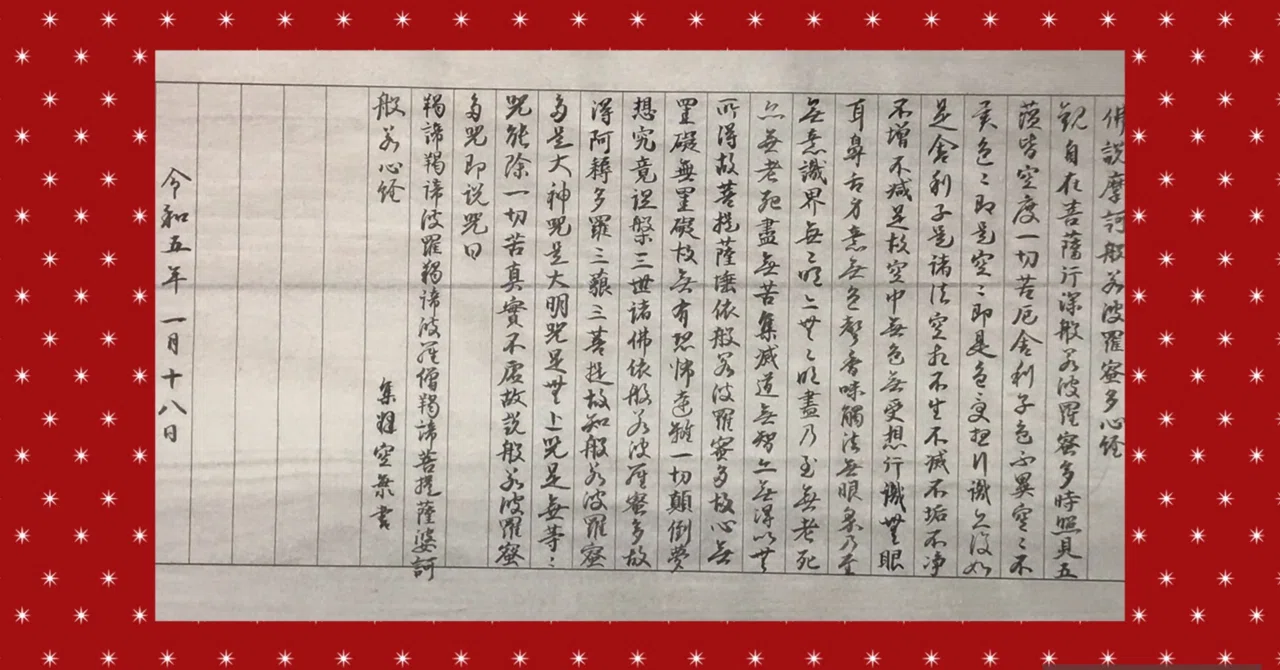 佛説摩訶般若波羅蜜多心経
観自在菩薩行深般若波羅蜜多時照見五
蘊皆空度一切苦厄舎利子色不異空〻不
異色〻即是空〻即是色受想行識亦復如
是舎利子是諸法空相不生不滅不垢不浄
不増不減是故空中無色無受想行識無眼
耳鼻舌身意無色聲香味觸法無眼界乃至
無意識界無〻明亦無〻明盡乃至無老死
亦無老死盡無苦集滅道無智亦無得以無
所得故菩提薩埵依般若波羅蜜多故心無
罣礙無罣礙故無有恐怖遠離一切顛倒夢
想究竟涅槃三世諸佛依般若波羅蜜多故
得阿耨多羅三藐三菩提故知般若波羅蜜
多是大神咒是大明咒是無上咒是無等〻
咒能除一切苦真實不虚故説般若波羅蜜
多咒即説咒曰
羯諦羯諦波羅羯諦波羅僧羯諦菩提薩婆訶
般若心経
集 空 書
令和五年一月十八日